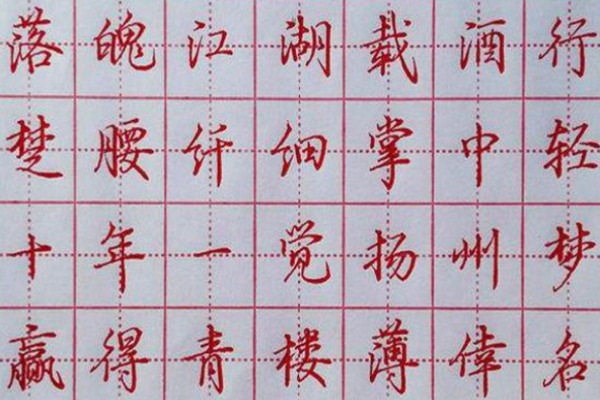 落魄江湖载酒行
楚腰纤细掌中轻
十年一觉扬州梦
赢得青楼薄倖名